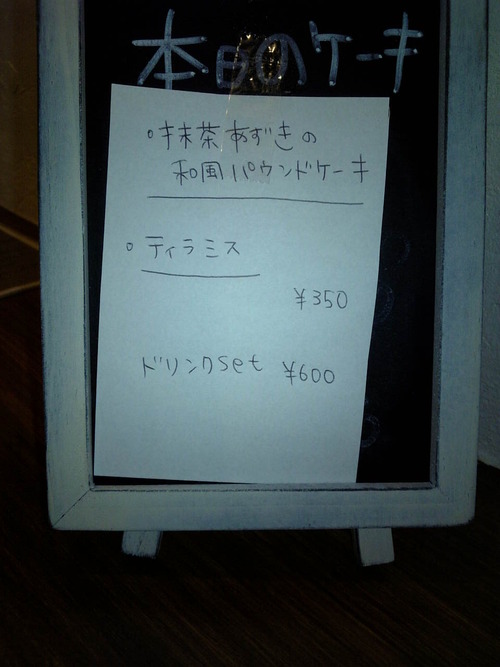 本日のケーキ
○抹茶あずきの
和風パウンドケーキ
○ティラミス
¥350
ドリンクset ¥600